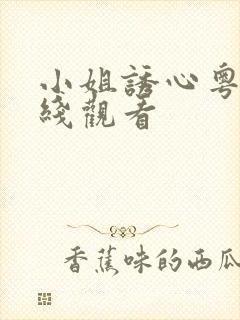 小姐誘心粵
綫觀看
香蕉味的西瓜